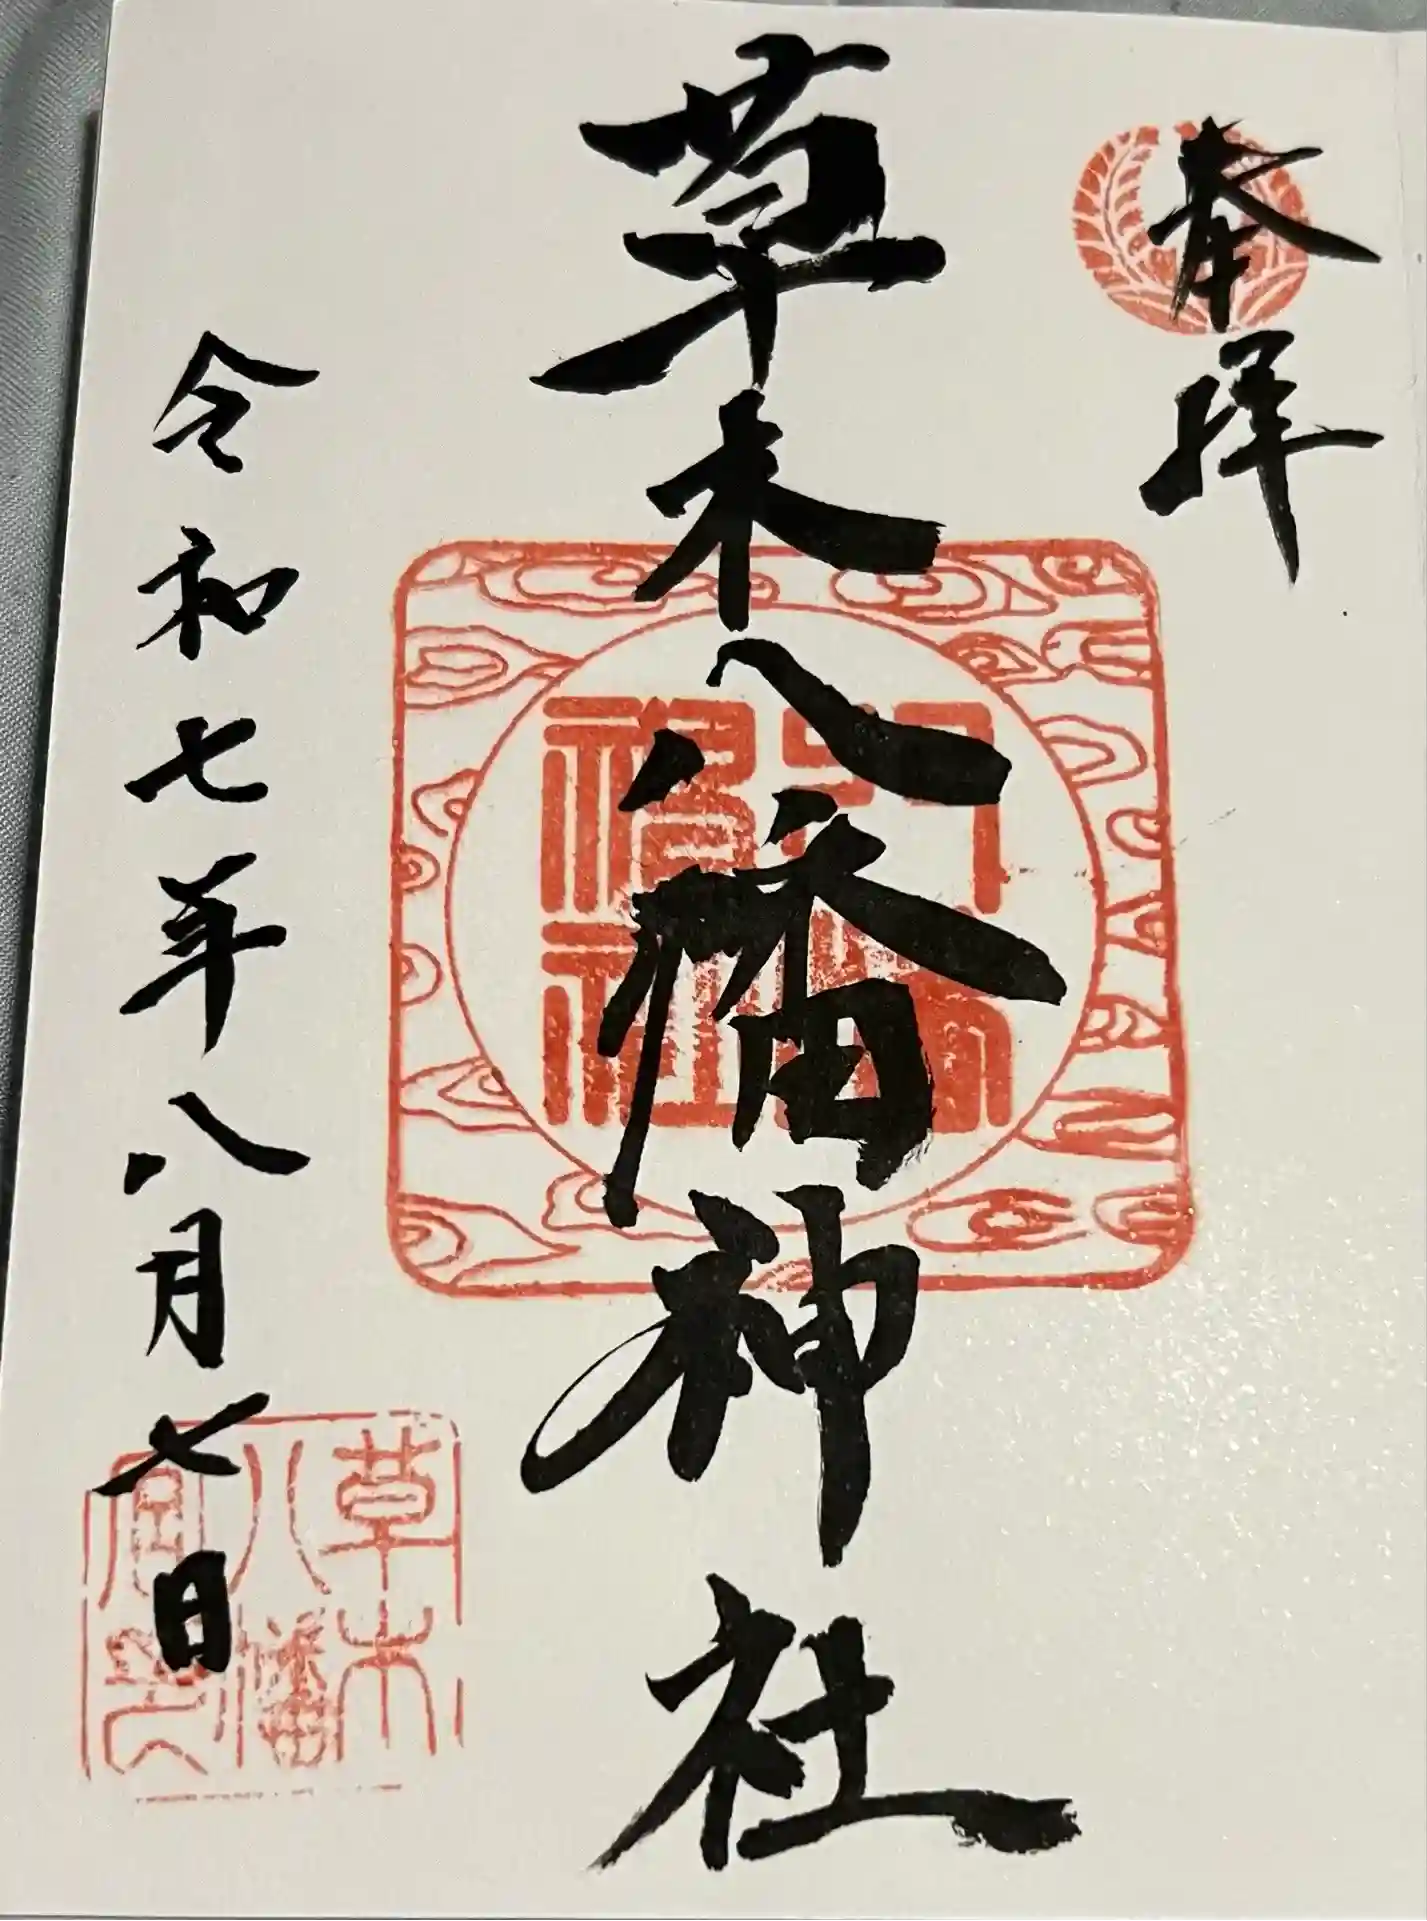 奉拝
草木八幡神社
令和七年八月七日
草木
八幡
宮印